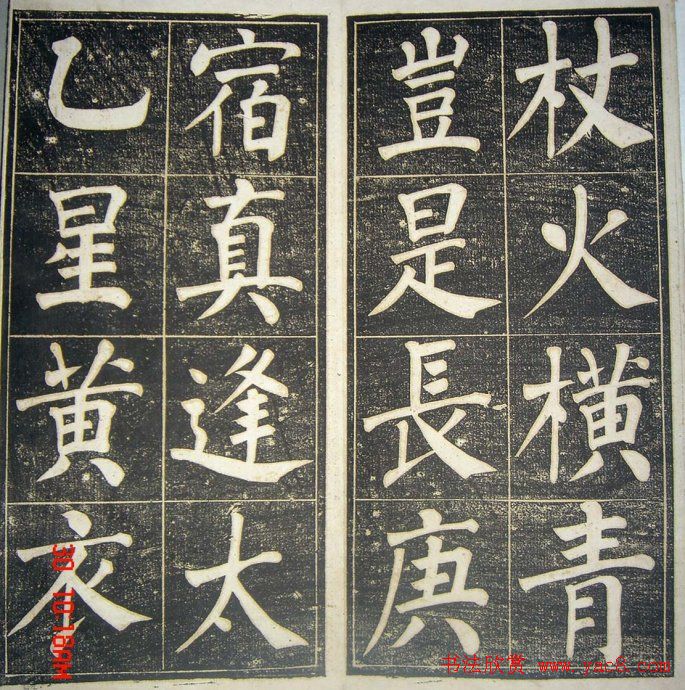 杖火橫青
豈是長庚
宿真逢太
乙星黄衣
30 10:18AM
书法欣赏 www.yac8.com